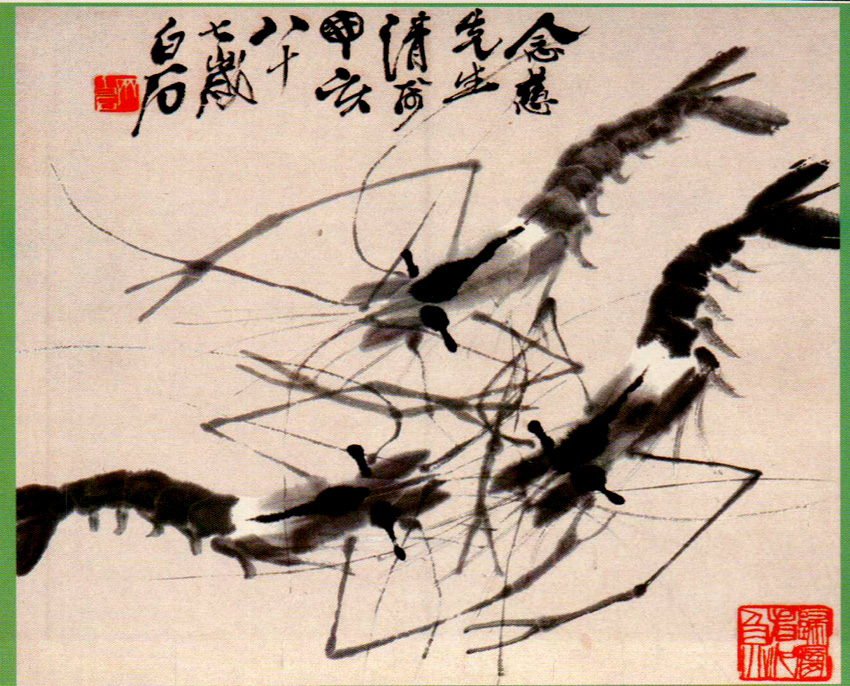 念慈
先生
清
甲
八十
七歲
白石